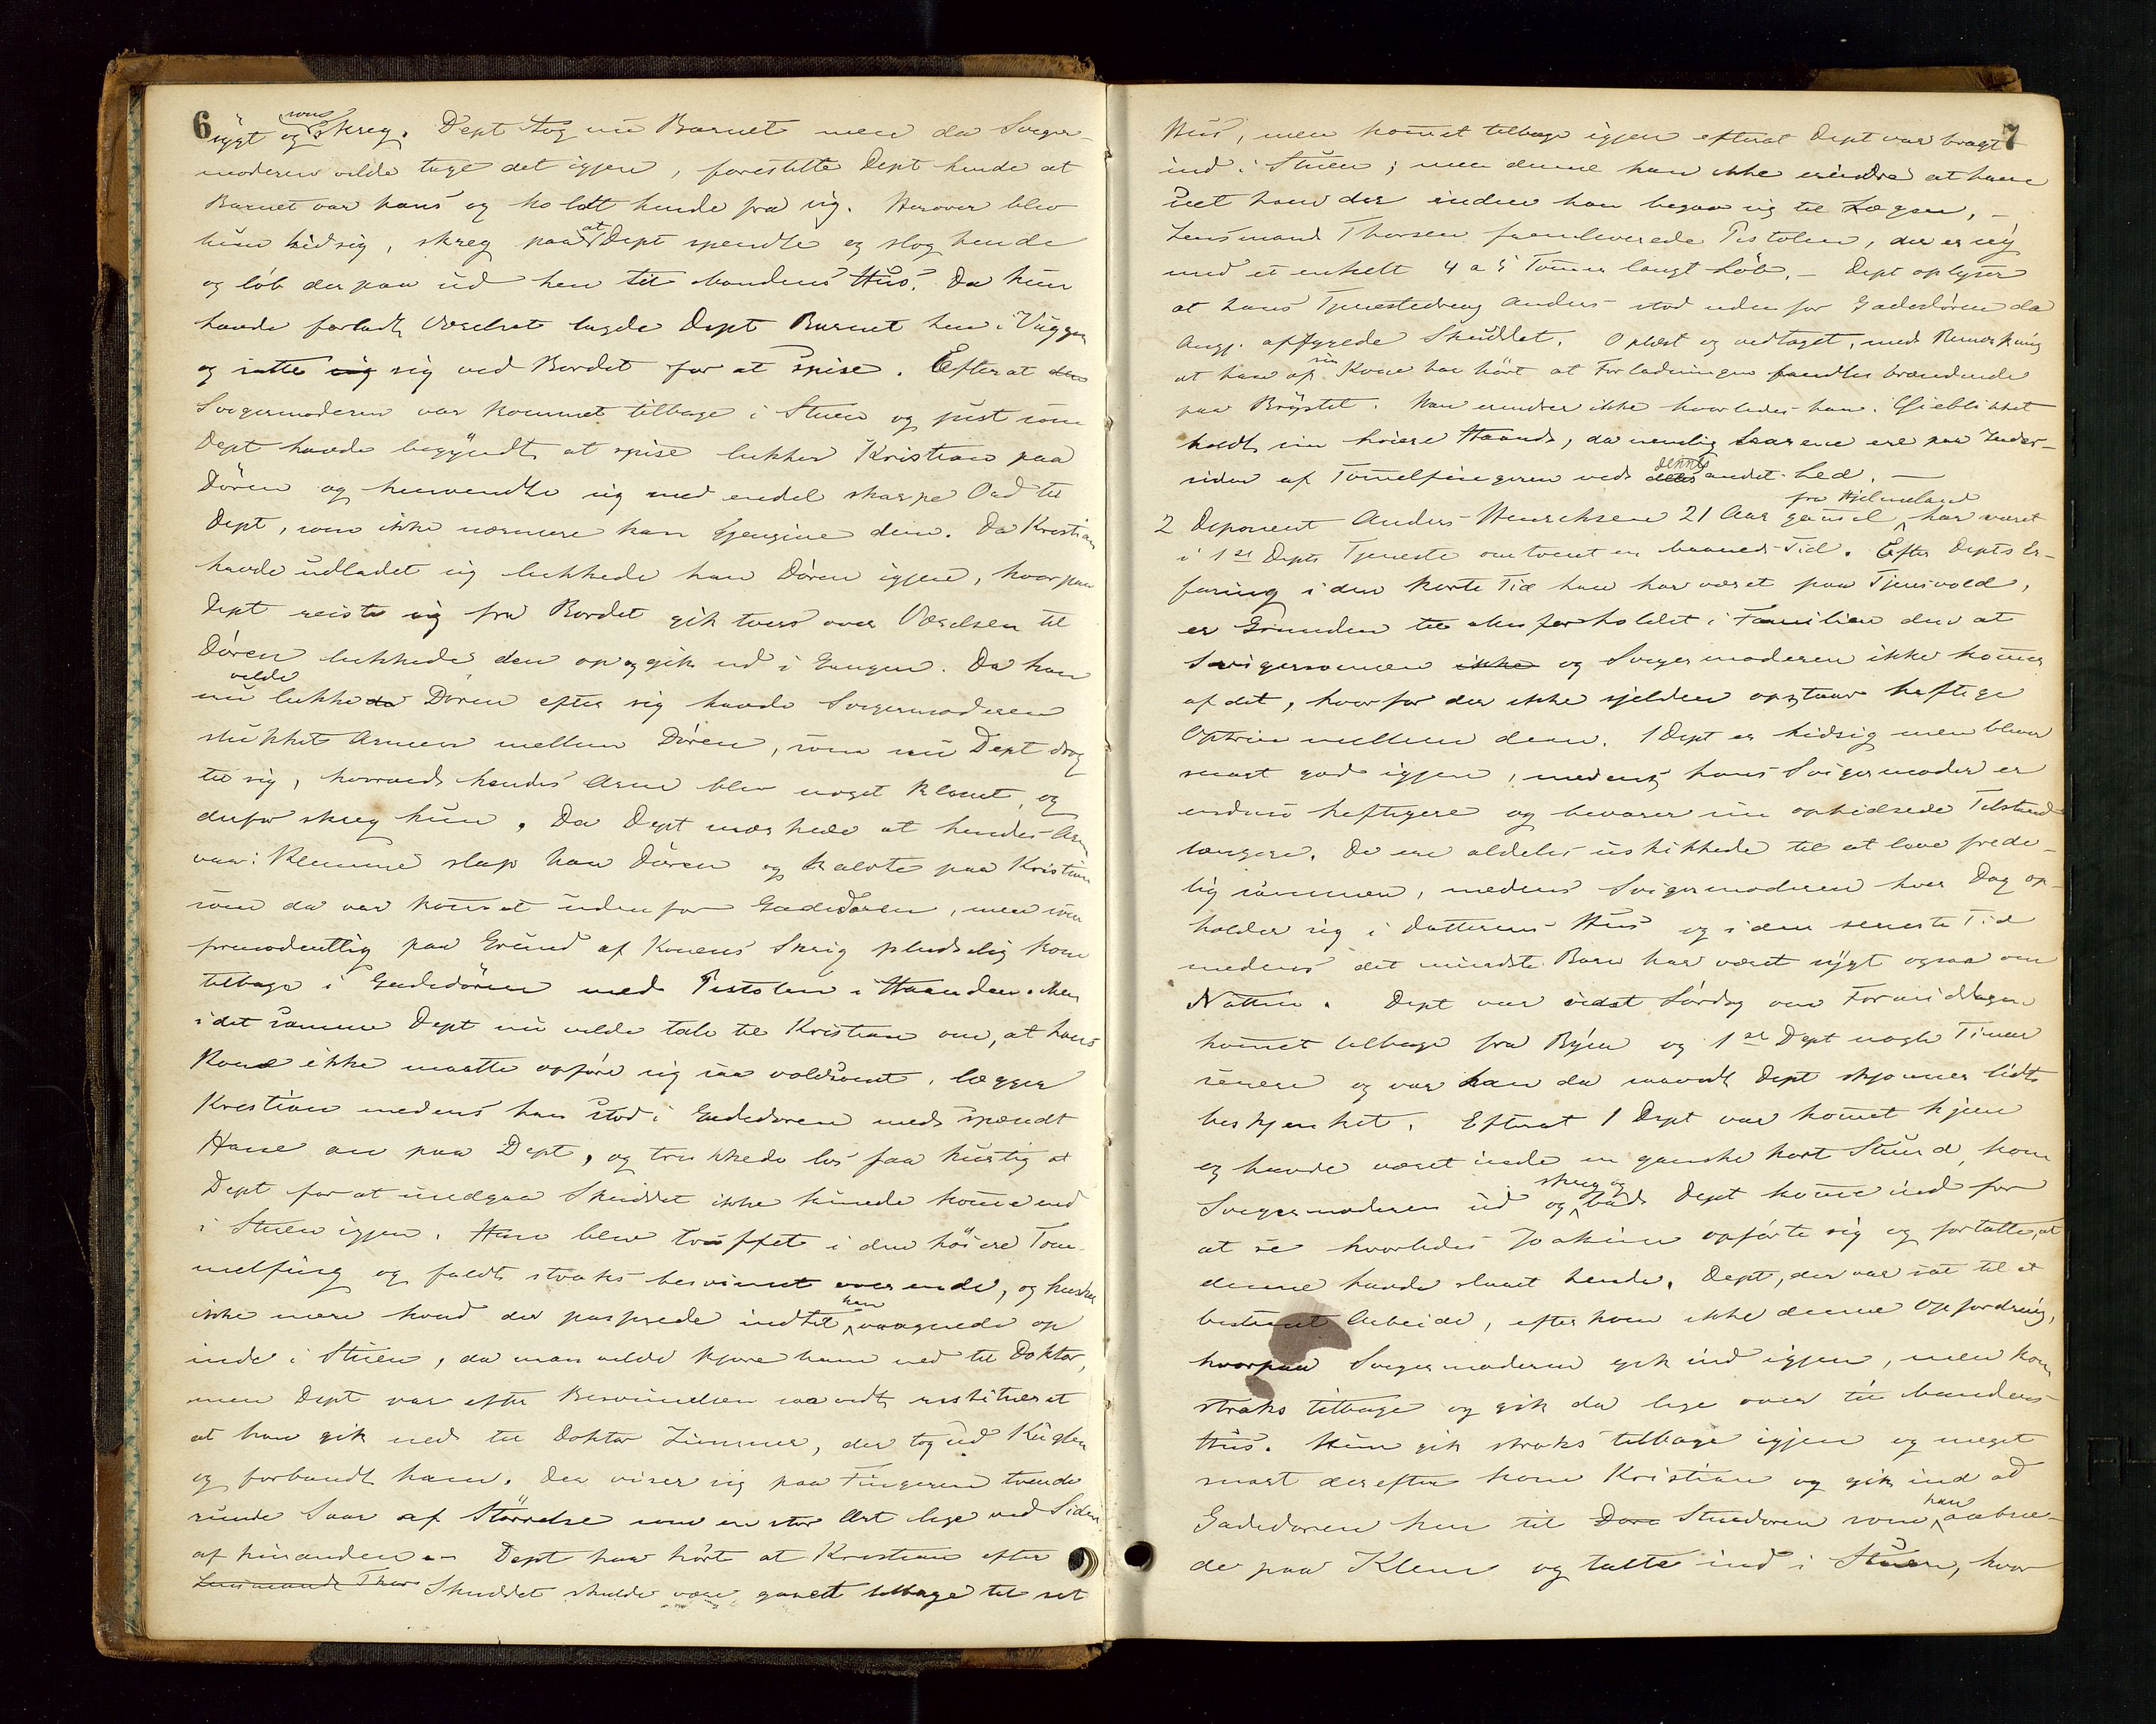 6
sygt og som skreg. Dept tog nu Barnet men da Sviger-
moderen vilde tage det igjen, forestilte Dept hende at
Barnet var hans og holdt hende fra sig. Herover blev
hun hidsig, skreg paa at Dept spendte og slog hende
og löb derpaa ud hen til Mandens Hus. Da hun
havde forladt Værelset lagde Dept Barnet hen i Vuggen
og satte sig sig ved Bordet for at spise. Efterat den
Svigermoderen var kommet tilbage i Stuen og just som
Dept havde begyndt at spise lukker Kristian paa
Dören og henvendte sig med endel skarpe Ord til
Dept, som ikke nærmere kan gjengive dem. Da Kristian
havde udladet sig lukkede han Dören igjen, hvorpaa
Dept reiste sig fra Bordet gik tvers over Værelsen til
Dören lukkede den op og gik ud i Gangen. Da han
vilde
nu lukkede Dören efter sig havde Svigermoderen
stukket Armen mellem Dören, som nu Dept drog
til sig, hvorved hendes Arm blev noget klemt, og
derfor skreg hun. Da Dept mærkede at hendes Arm
var i Klemme slap han Dören og kaldte paa Kristian
som da var kommet udenfor Gadedören, men som
formodentlig paa Grund af Konens Skrig pludselig kom
tilbage i Gadedören med Pistolen i Haanden. Men
idet samme Dept nu vilde tale til Kristian om, at hans
Kone ikke maatte opföre sig saa voldsomt, lægger
Kristian medens han stod i Gadedören med spændt
Hane an paa Dept, og trykkede lös saa hurtig at
Dept for at undgaa Skuddet ikke kunde komme ind
i Stuen igjen. Han blev truffet i den höiere Tom-
melfing og faldt straks besvimet over ende, og husker
ikke mere hvad der passerede indtil han vaagnede op
inde i Stuen, da man vilde kjöre ham ned til Doktor,
men Dept var efter Besvimelsen saavidt restitueret
at han gik ned til Doktor Zimmer, der tog ud Kuglen
og forbandt ham. Der viser sig paa Fingeren tvende
runde Saar af Störrelse som en stor Ært lige ved Siden
af hinanden. – Dept har hört at Kristian efter
Lensmand Thor Skuddet skulde være gaaet tilbage til sit
7
Hus, men kommet tilbage igjen efterat Dept var bragt
ind i Stuen; men denne kan ikke erindre at have
seet ham der inden han begav sig til Lægen. –
Lensmand Thorsen fremleverede Pistolen, der er ny
med et enkelt 4 a 5 Tommer langt Löb. – Dept oplyser
at hans Tjenestedreng Anders stod udenfor Gadedören da
Angj. affyrede Skuddet. Oplæst og vedtaget, med Bemærkning
at han af sin Kone har hört at Forladningen fandtes brændende
paa Brystet. Han erindrer ikke hvorledes han i Öieblikket
holdt sin höiere Haand, da nemlig Saarene ere paa Inder-
siden af Tommelfingeren ved dettes dennes andet Led. –
2 Deponent Anders Henrichsen 21 Aar gammel fra Hjelmeland har været
i 1ste Depts Tjeneste omtrent en Maaneds Tid. Efter Depts Er-
faring i den korte Tid han har været paa Tjensvold,
er Grunden til Misforholdet i Familien den at
Svigersönnen ikke og Svigermoderen ikke kommer
af det, hvorfor der ikke sjelden opstaar heftige
Optrin mellem dem. 1 Dept er hidsig men bliver
snart god igjen, medens hans Svigermoder er
endnu heftigere og bevarer sin ophidsede Tilstand
længere. De ere aldeles uskikkede til at leve frede-
lig sammen, medens Svigermoderen hver Dag op-
holder sig i Datterens Hus og i den seneste Tid
medens det mindste Barn har været sygt ogsaa om
Natten. Dept var sidst Lördag om Formiddagen
kommet tilbage fra Byen og 1ste Dept nogle Timer
senere og var han da saavidt Dept skjönner lidt
beskjenket. Efterat 1 Dept var kommet hjem
og havde været inde en ganske kort Stund, kom
Svigermoderen ud og skreg og bad Dept komme ind for
at se hvorledes Joakim opförte sig og fortalte, at
denne havde slaaet hende. Dept, der var sat til et
bestemt Arbeide, efterkom ikke denne Opfordring,
hvorpaa Svigermoderen gik ind igjen, men kom
straks tilbage og gik da lige over til Mandens
Hus. Hun gik straks tilbage igjen og meget
snart derefter kom Kristian og gik ind ad
Gadedören hen til Döre Stuedören som han aabne-
de paa Klem og talte ind i Stuen, hvor